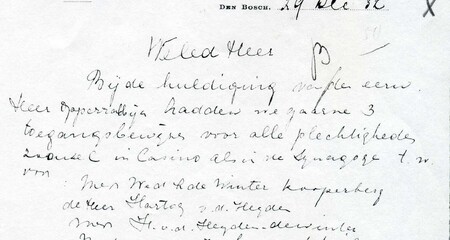 DEN BOSCH, 29 Dec 32
X
Weled Heer
Bij de huldiging van den eerw.
Heer Opperrabbijn hadden we gaarne 3
toegangsbewijzen voor alle plechtigheden
zoowel in Casino als in de Synagoge t.w.
voor:
Mevr Wed de Winter Koopersberg
de Heer Hartog v.d. Heyden
Mevr H. v.d. Heyden-de Winter